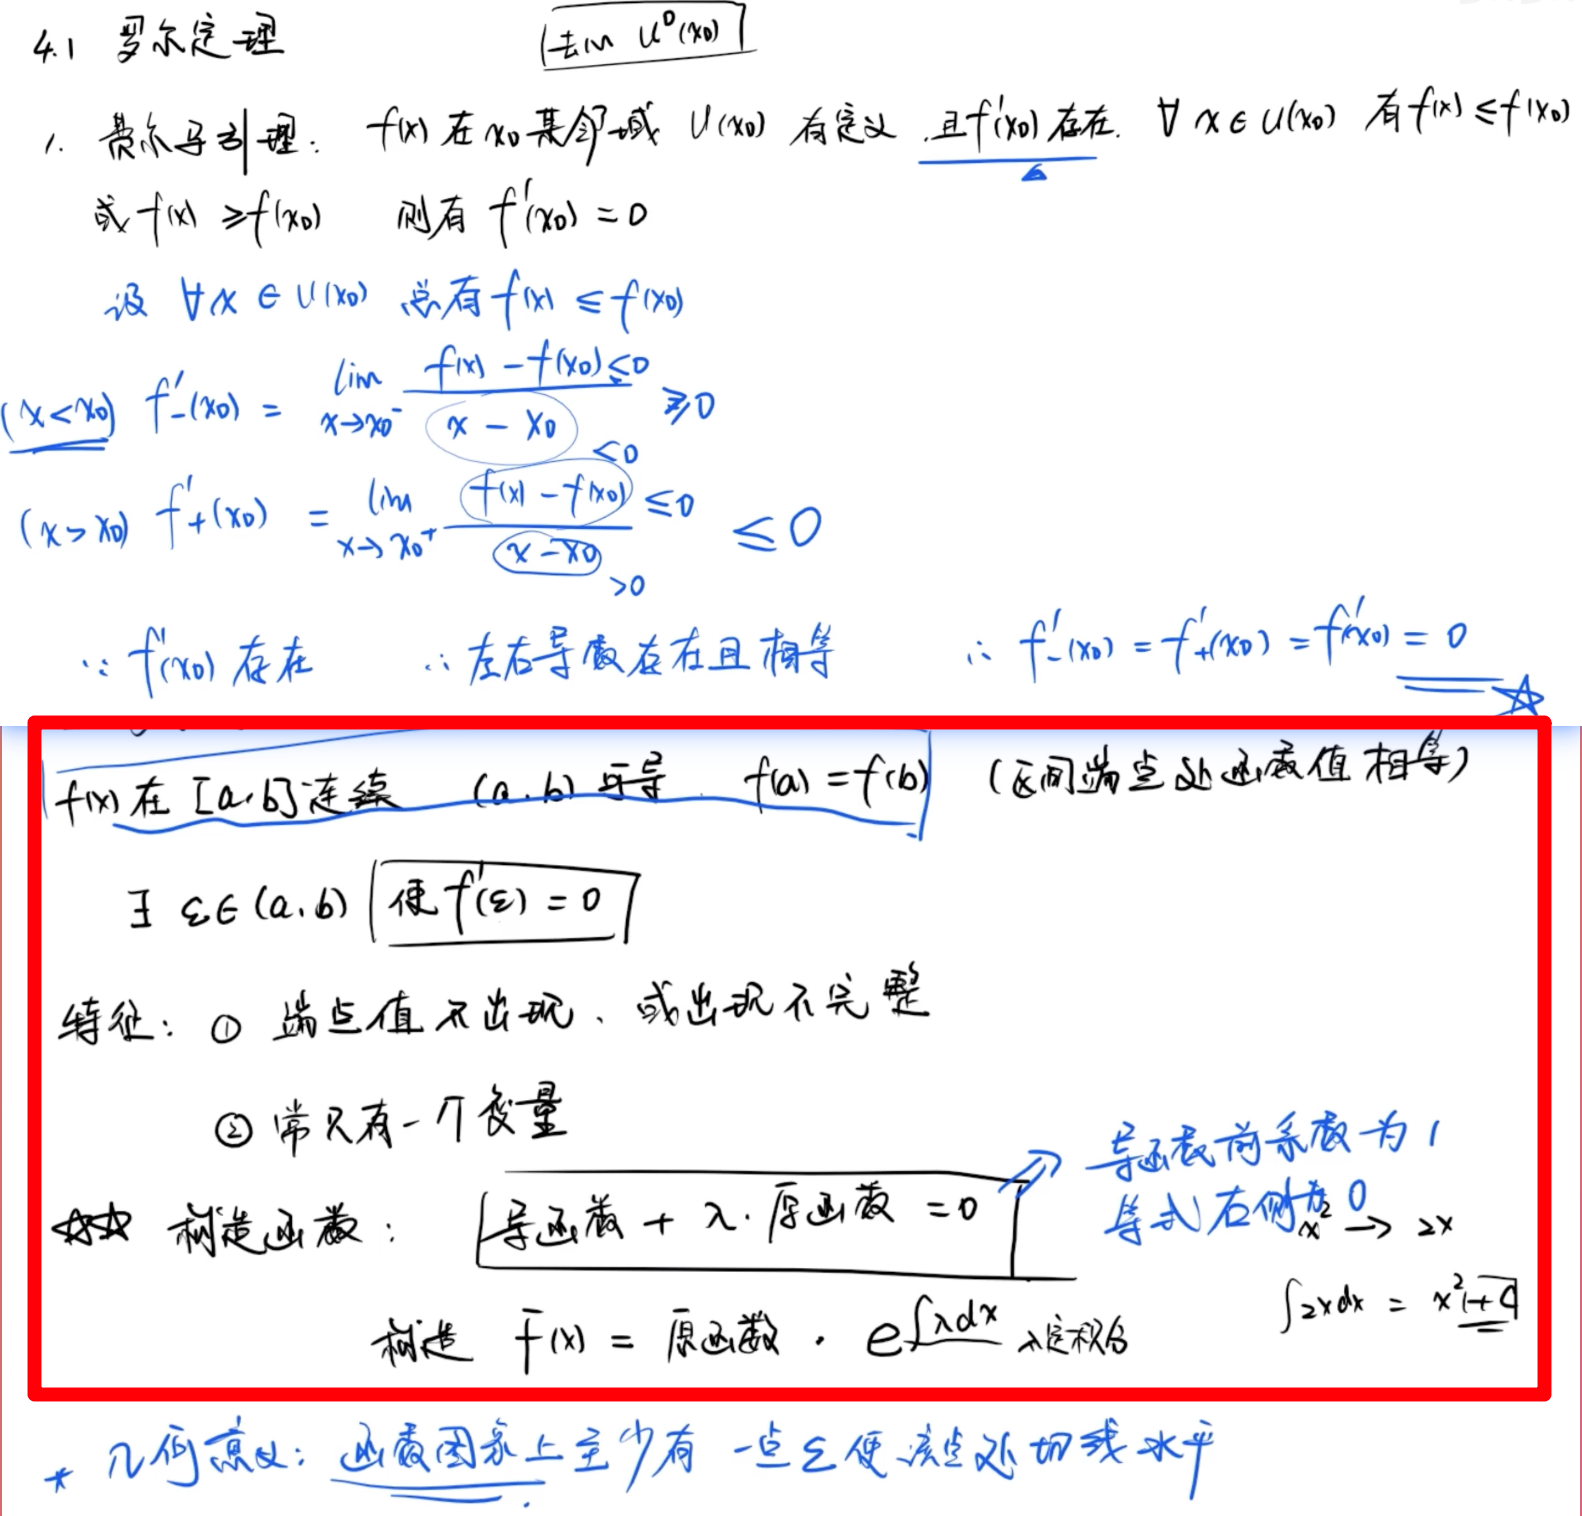 4.1 罗尔定理 去心 U⁰(x₀)
1. 费尔马引理: f(x) 在 x₀ 某邻域 U(x₀) 有定义.且f'(x₀)存在. ∀ x ∈ U(x₀) 有 f(x) ≤ f(x₀)
或 f(x) ≥ f(x₀) 则有 f'(x₀) = 0
设 ∀x ∈ U(x₀) 总有 f(x) ≤ f(x₀)
(x<x₀) f'₋(x₀) = lim x→x₀⁻ f(x) - f(x₀) ≤0 / x - x₀ <0 ≥0
(x>x₀) f'₊(x₀) = lim x→x₀⁺ f(x) - f(x₀) ≤0 / x - x₀ >0 ≤0
∵ f'(x₀) 存在 ∴ 左右导数存在且相等 ∴ f'₋(x₀) = f'₊(x₀) = f'(x₀) = 0
f(x) 在 [a,b] 连续 (a,b) 可导 f(a) = f(b) (区间端点处函数值相等)
∃ ε∈(a,b) 使 f'(ε) = 0
特征: ① 端点值不出现、或出现不完整
② 常只有一个变量
导函数前系数为1
☆☆ 构造函数: 导函数 + λ·原函数 = 0
等式右侧为0
x² → 2x
∫2xdx = x²+C
构造 F(x) = 原函数 · e^∫λdx 不定积分
* 几何意义: 函数图象上至少有一点ε使该点处切线水平